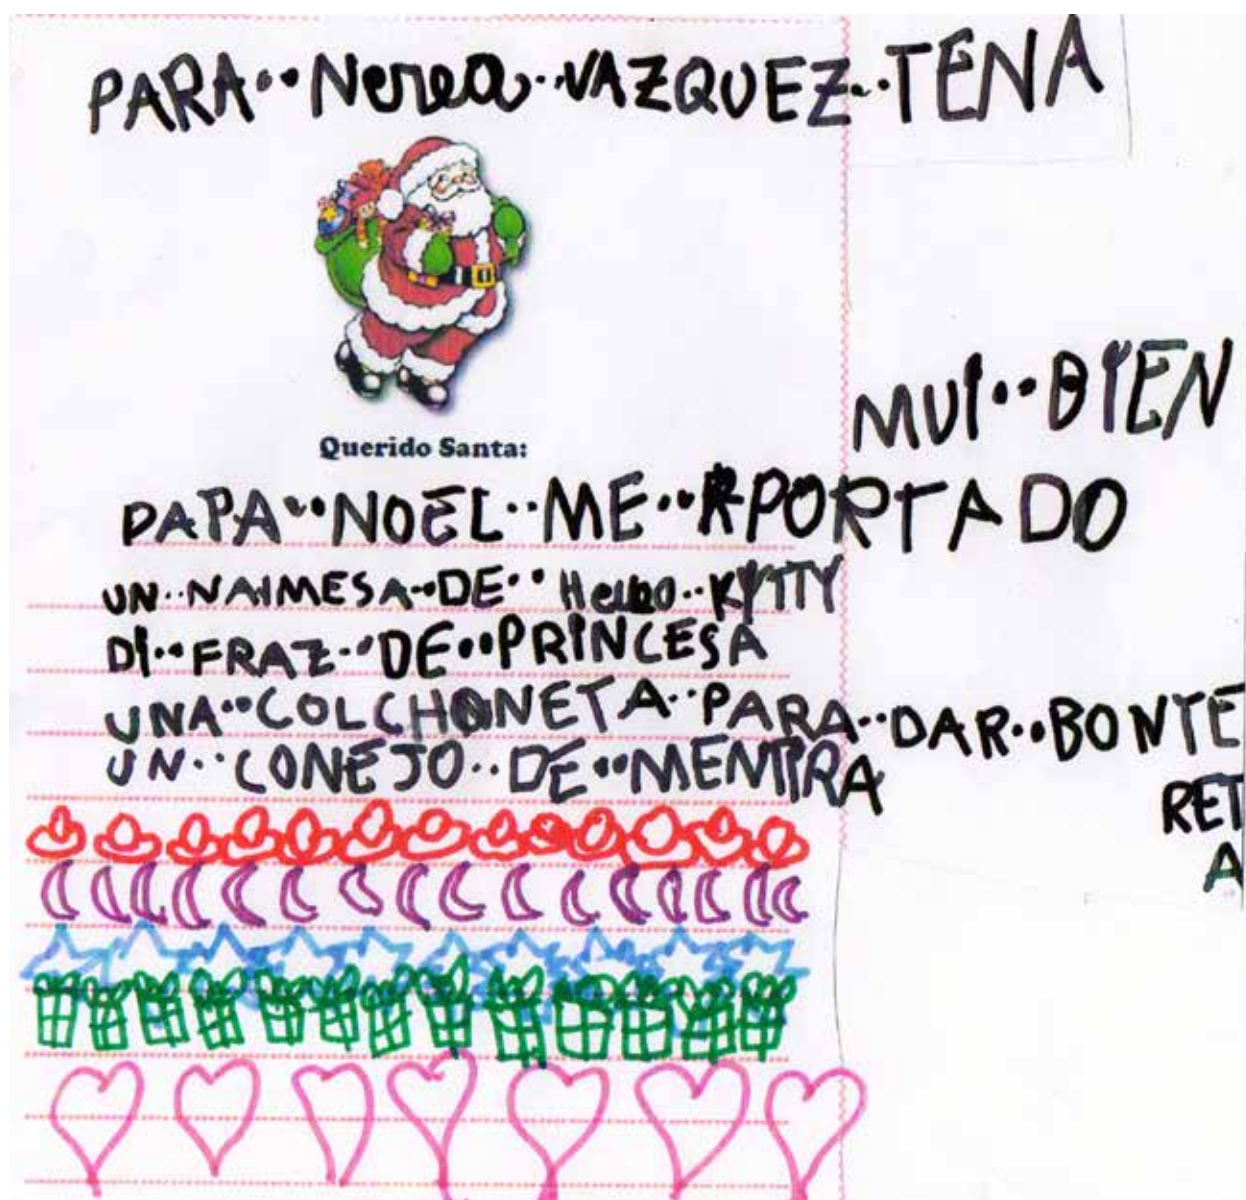 PARA··Nerea··VAZQUEZ··TENA
Querido Santa:
MUI··BIEN
PAPA··NOEL··ME··PORTADO
UN··NAIMESA··DE··Hello··KYTTY
DI··FRAZ··DE··PRINCESA
UNA··COLCHONETA··PARA··DAR··BONTE
RET
A
UN··CONEJO··DE··MENTIRA